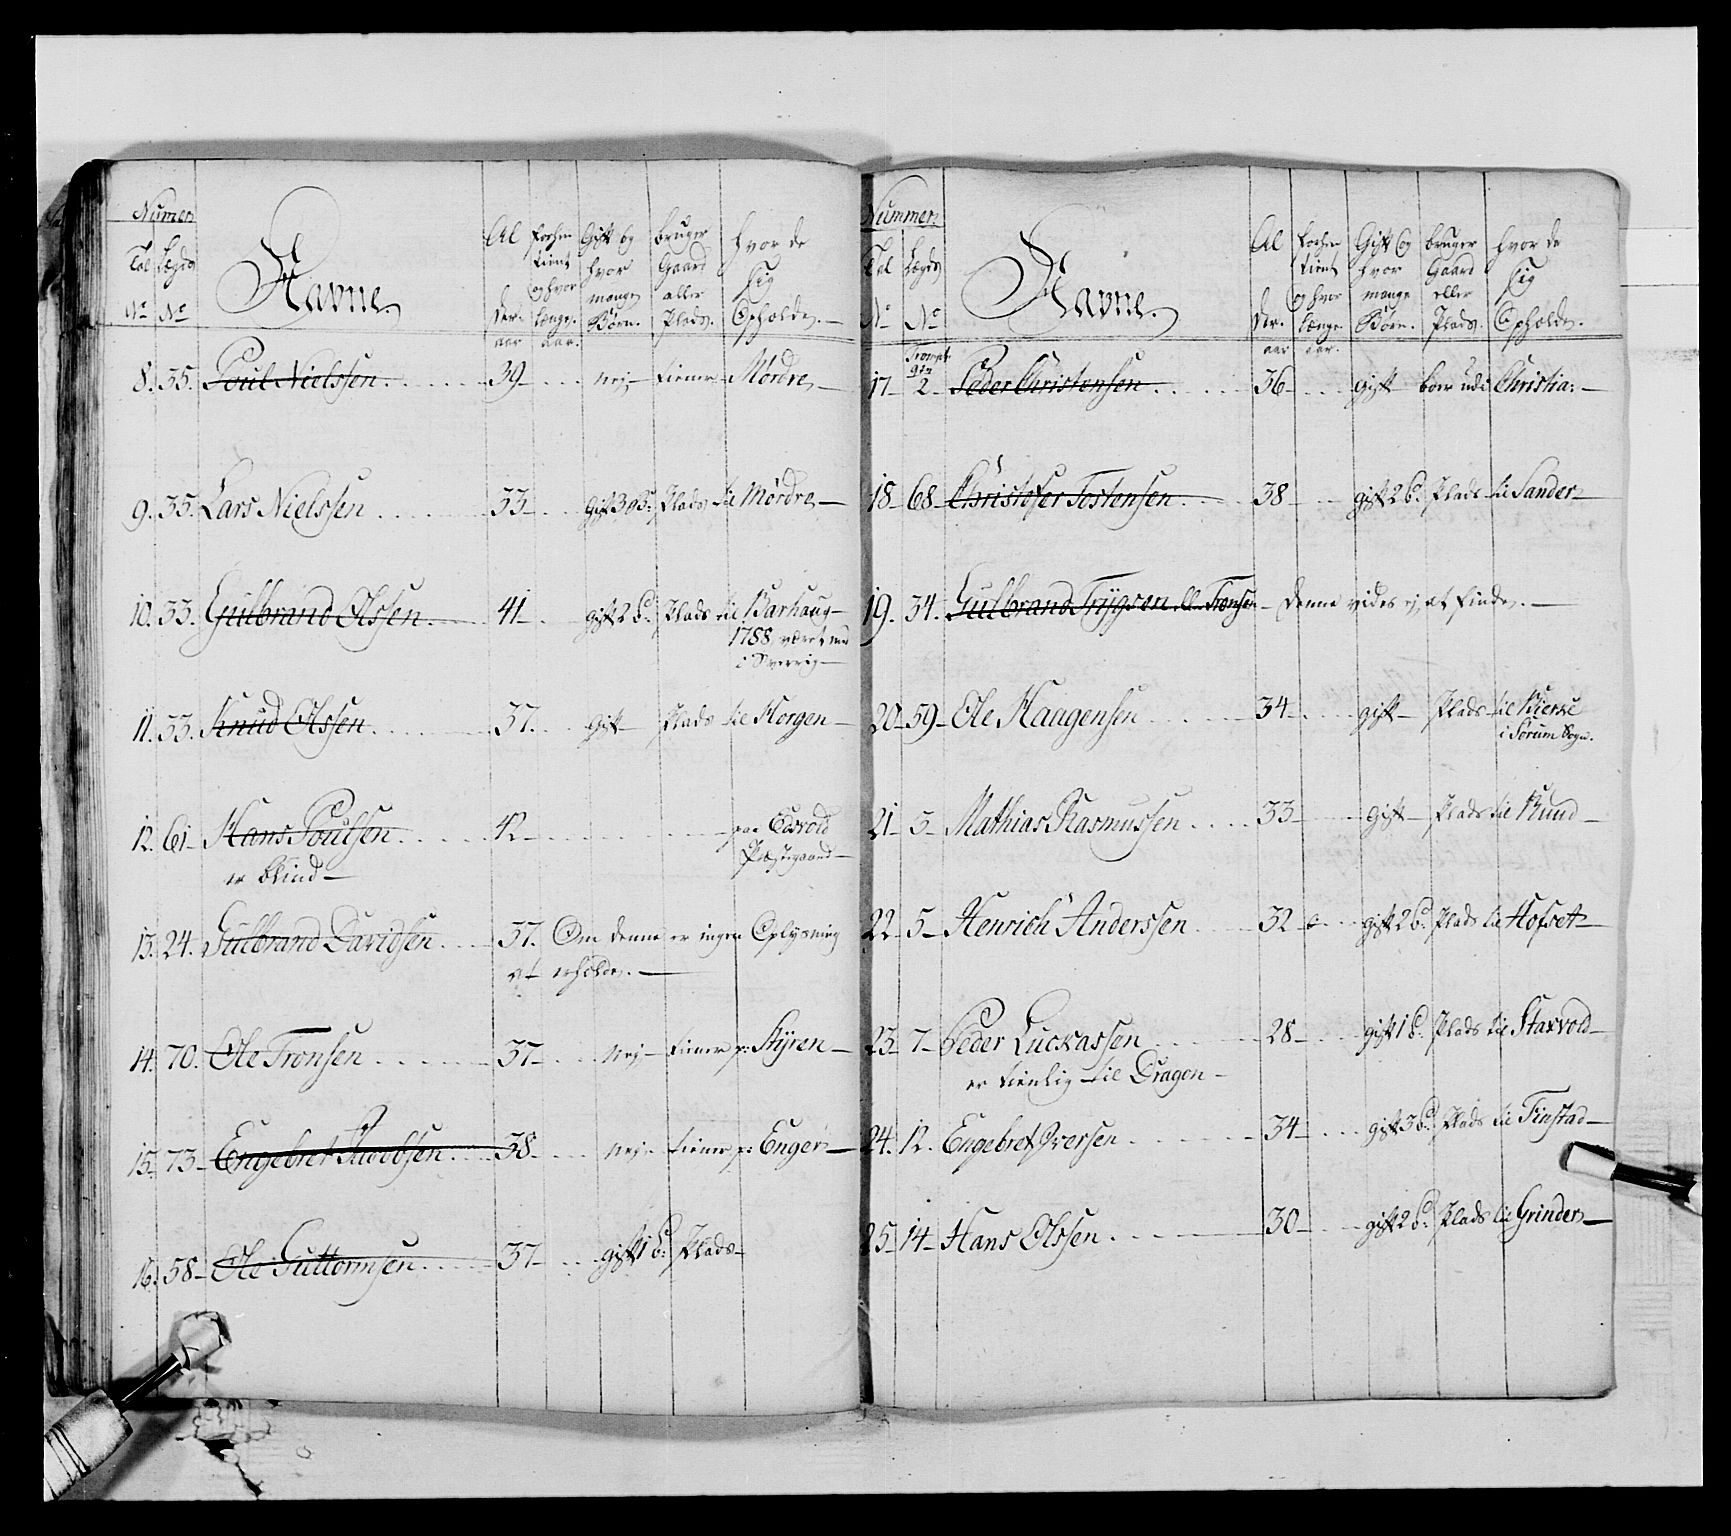 Numer
Tal Lægds
No No
Navne.
Al
der.
aar
forhen
tient
og hvor
længe.
aar.
Gift og
hvor
mange
Børn.
bruger
Gaard
eller
Plads.
hvor de
sig
Opholde.
8. 35. Poul Nielssen 39 Nej tiener Mørdre
9. 35. Lars Nielssen 33 gift 3 B: Plads til Mørdre
10. 33. Gulbrand Olssen 41 gift 2 b: Plads til Barhaug
1788 været med
i Sverrig
11. 33. Knud Olssen 37. gift Plads til Horgen
12. 61 Hans Poulsen 42 paa Edsvold
er blind Præstegaard
13. 24. Gulbrand Davidsen 37. Om denne er ingen Oplysning
at erholde.
14. 70. Ole Tronsen 37 Nej tiener p: Styren
15. 73 Engebret Jacobsen 38 Nej tiener p: Enger
16. 58 Ole Guttormsen 37 gift 1 b: Plads
Nummer
Tal Lægds
No No
Navne.
Al
der.
aar
forhen
tient
og hvor
længe
aar.
Gift og
hvor
mange
Børn.
bruger
Gaard
eller
Plads.
hvor de
sig
Opholde.
17 2 Peder Christensen 36 gift boer udi Christia:
18 68 Christofer Tostensen 38 gift 2 b: Plads til Sander
19. 34. Gulbrand Trygsen ell. Tronsen denne vides ej at finde.
20 59 Ole Haagensen 34 gift Plads til Bierke
i Sørum Sogn.
21 3 Mathias Rasmussen 33 gift Plads til Rund
22 5 Henrich Anderssen 32 gift 2 b: Plads til Hofset
23 7 Peder Luckassen 28 gift 1 b: Plads til Starvold
er tienlig til Dragon
24. 12. Engebret Iversen 34 gift 3 b: Plads til Finstad
25 14 Hans Olssen 30 gift 2 b: Plads til Grinder